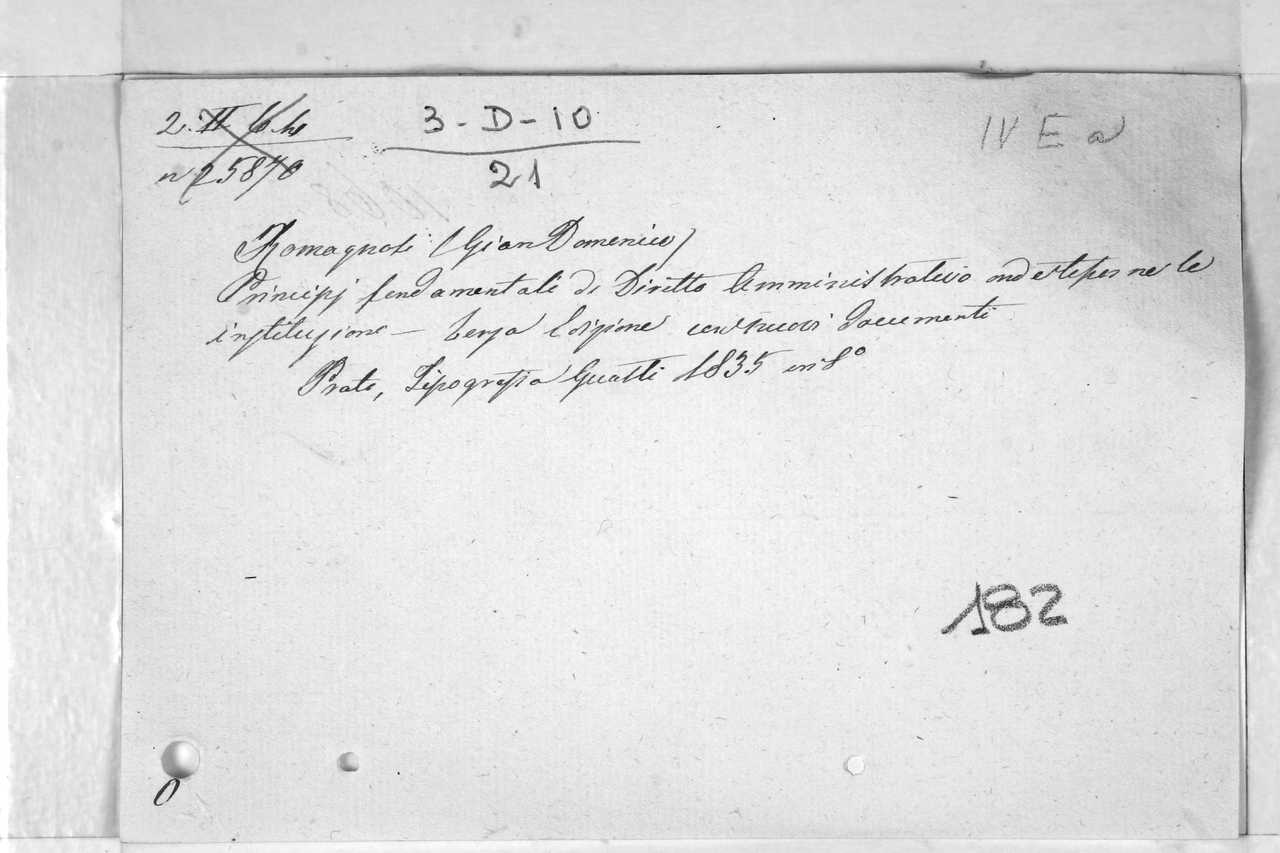 2. II 6. 4o
n 25870
3 - D - 10
21
IV E a
Romagnosi (Gian Domenico)
Principj fondamentali di Diritto Amministrativo onde tesserne le
instituzione — terza Edizione con nuovi documenti
Prato, Tipografia Guasti 1835 in 8º
182
0